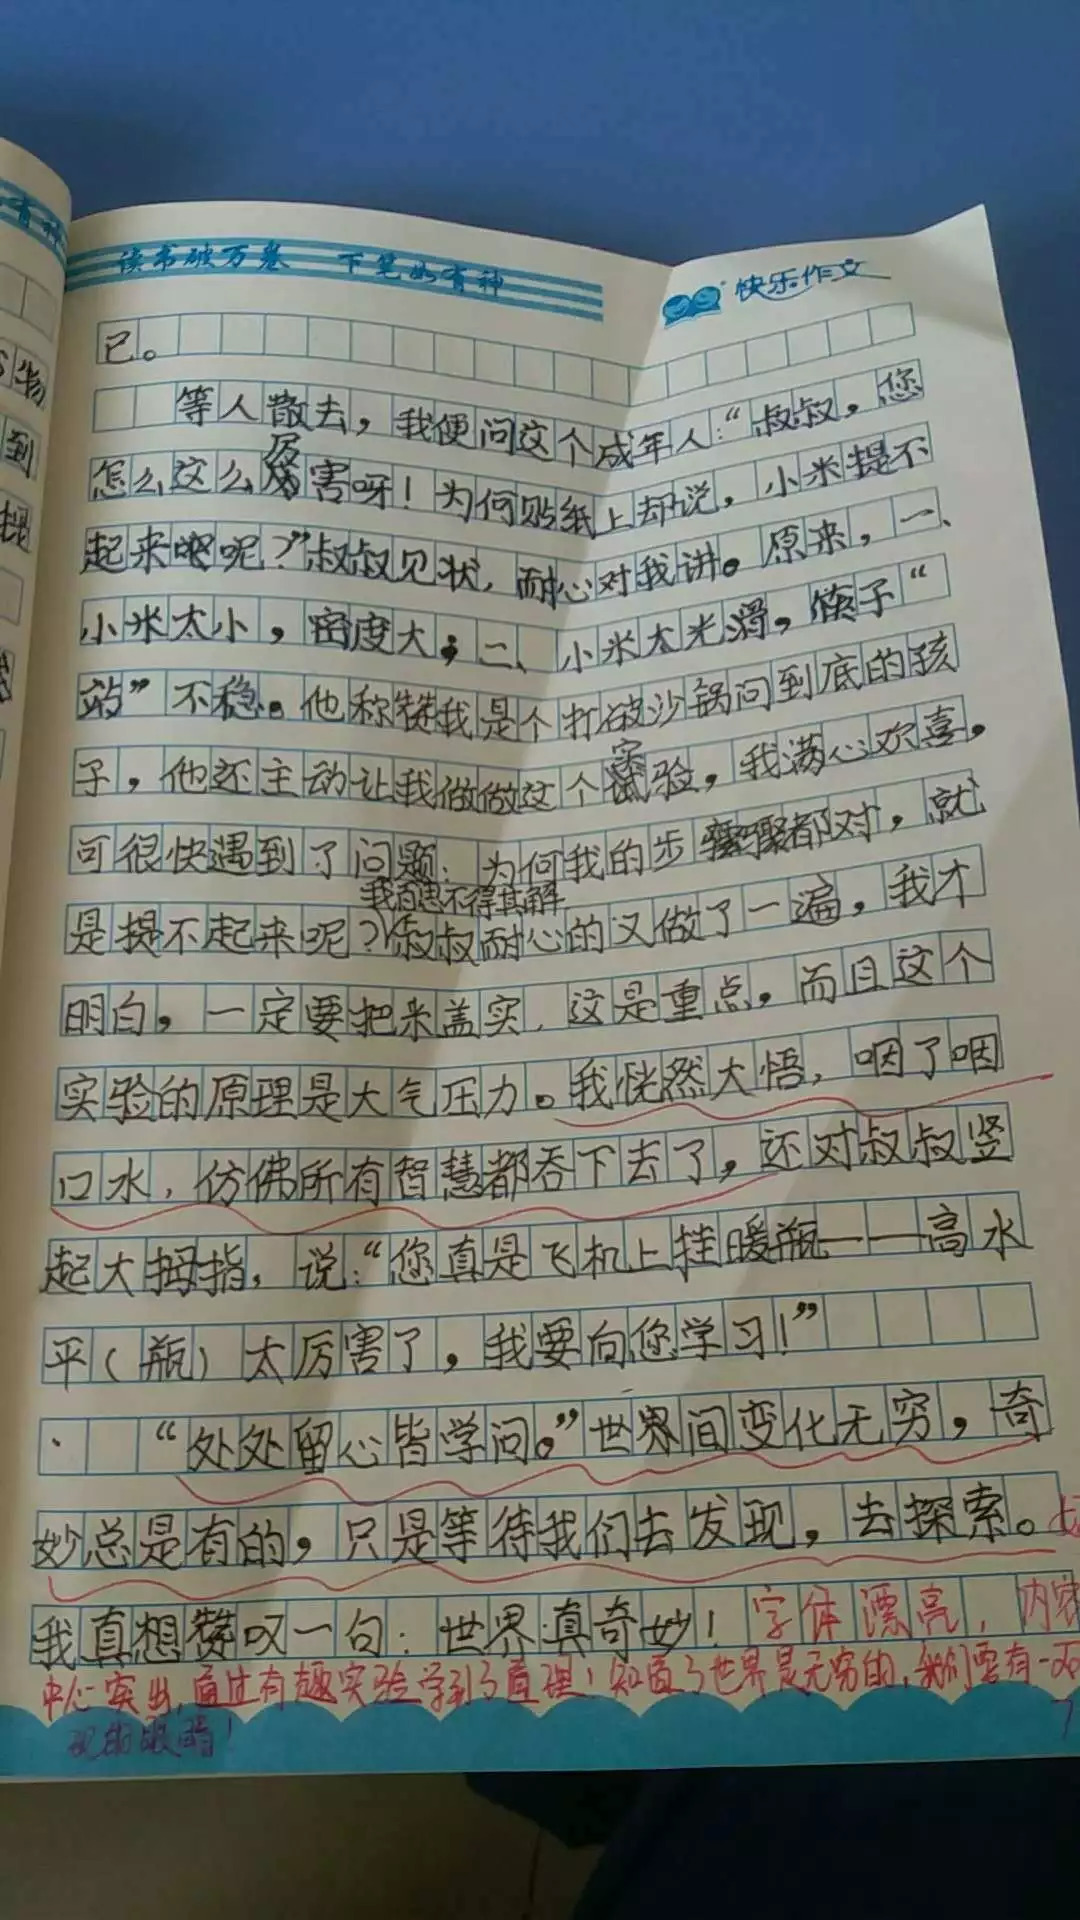 有神
读书破万卷 下笔如有神
快乐作文
物
到
提
已。
等人散去，我便问这个成年人：“叔叔，您
厉
怎么这么害呀！为何贴纸上却说，小米提不
起来呢？”叔叔见状，耐心对我讲。原来，一、
小米太小，密度大；二、小米太光滑，筷子“
站”不稳。他称赞我是个打破沙锅问到底的孩
实
子，他还主动让我做做这个验，我满心欢喜。
可很快遇到了问题：为何我的步骤都对，就
我百思不得其解
是提不起来呢？叔叔耐心的又做了一遍，我才
明白，一定要把米盖实，这是重点，而且这个
实验的原理是大气压力。我恍然大悟，咽了咽
口水，仿佛所有智慧都吞下去了，还对叔叔竖
起大拇指，说：“您真是飞机上挂暖瓶——高水
平（瓶）太厉害了，我要向您学习！”
“处处留心皆学问。”世界间变化无穷，奇
妙总是有的，只是等待我们去发现，去探索。
我真想赞叹一句：世界真奇妙！字体漂亮，内容
中心突出，通过有趣实验学到了道理！知道了世界是无穷的，我们要有一双
现的眼睛！